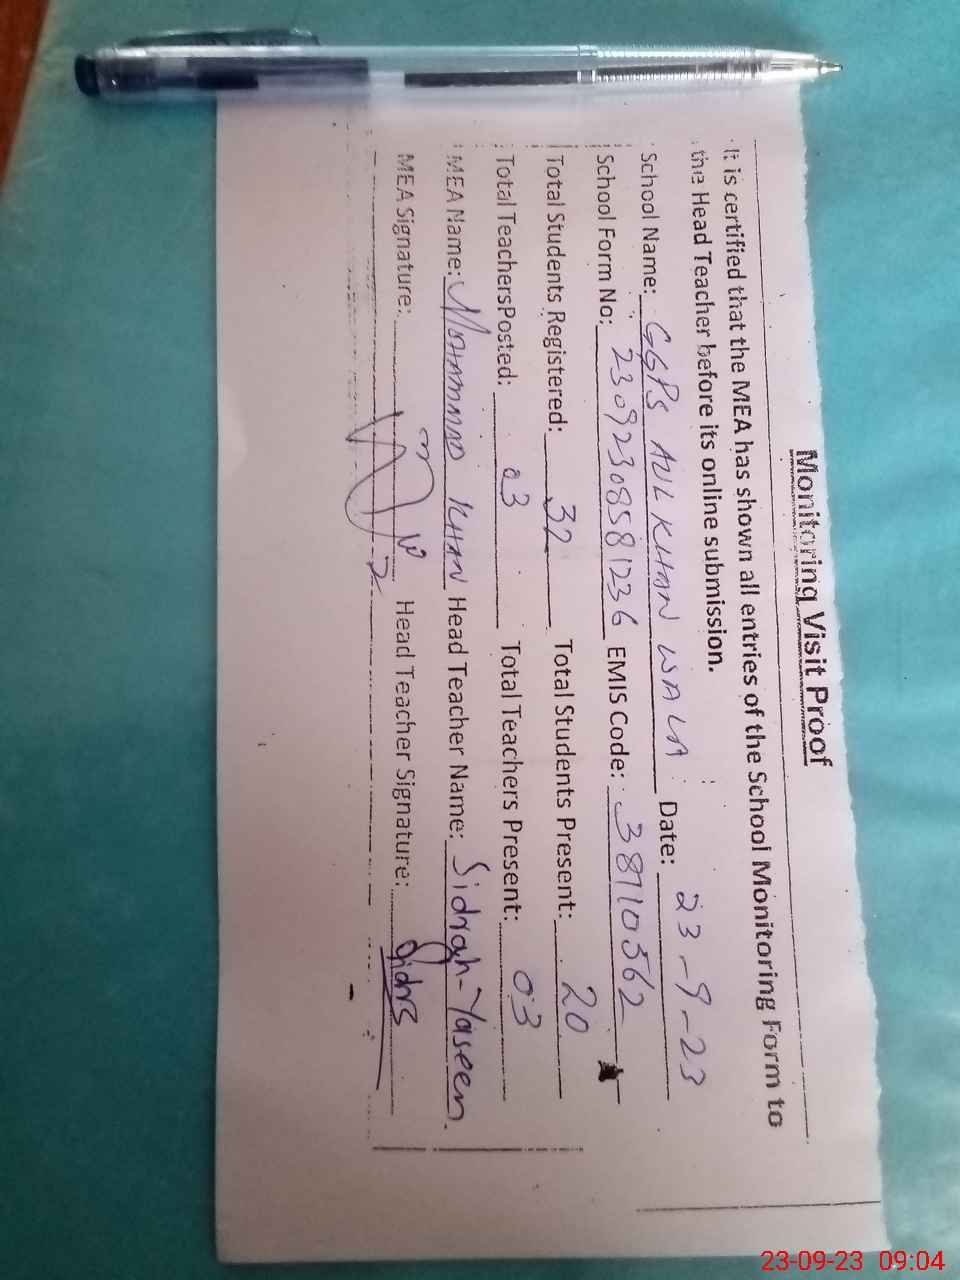 Monitoring Visit Proof
It is certified that the MEA has shown all entries of the School Monitoring Form to
the Head Teacher before its online submission.
School Name: GGPS AUL KHAN WALA Date: 23-9-23
School Form No: 23092308581236 EMIS Code: 38710562
Total Students Registered: 32 Total Students Present: 20
Total TeachersPosted: 03 Total Teachers Present: 03
MEA Name: MOHAMMAD KHAN Head Teacher Name: Sidrah-Yaseen
MEA Signature: Head Teacher Signature: Sidra
23-09-23 09:04